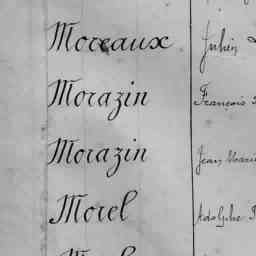 Moreaux Julien
Morazin François
Morazin Jean Marie
Morel Adolphe